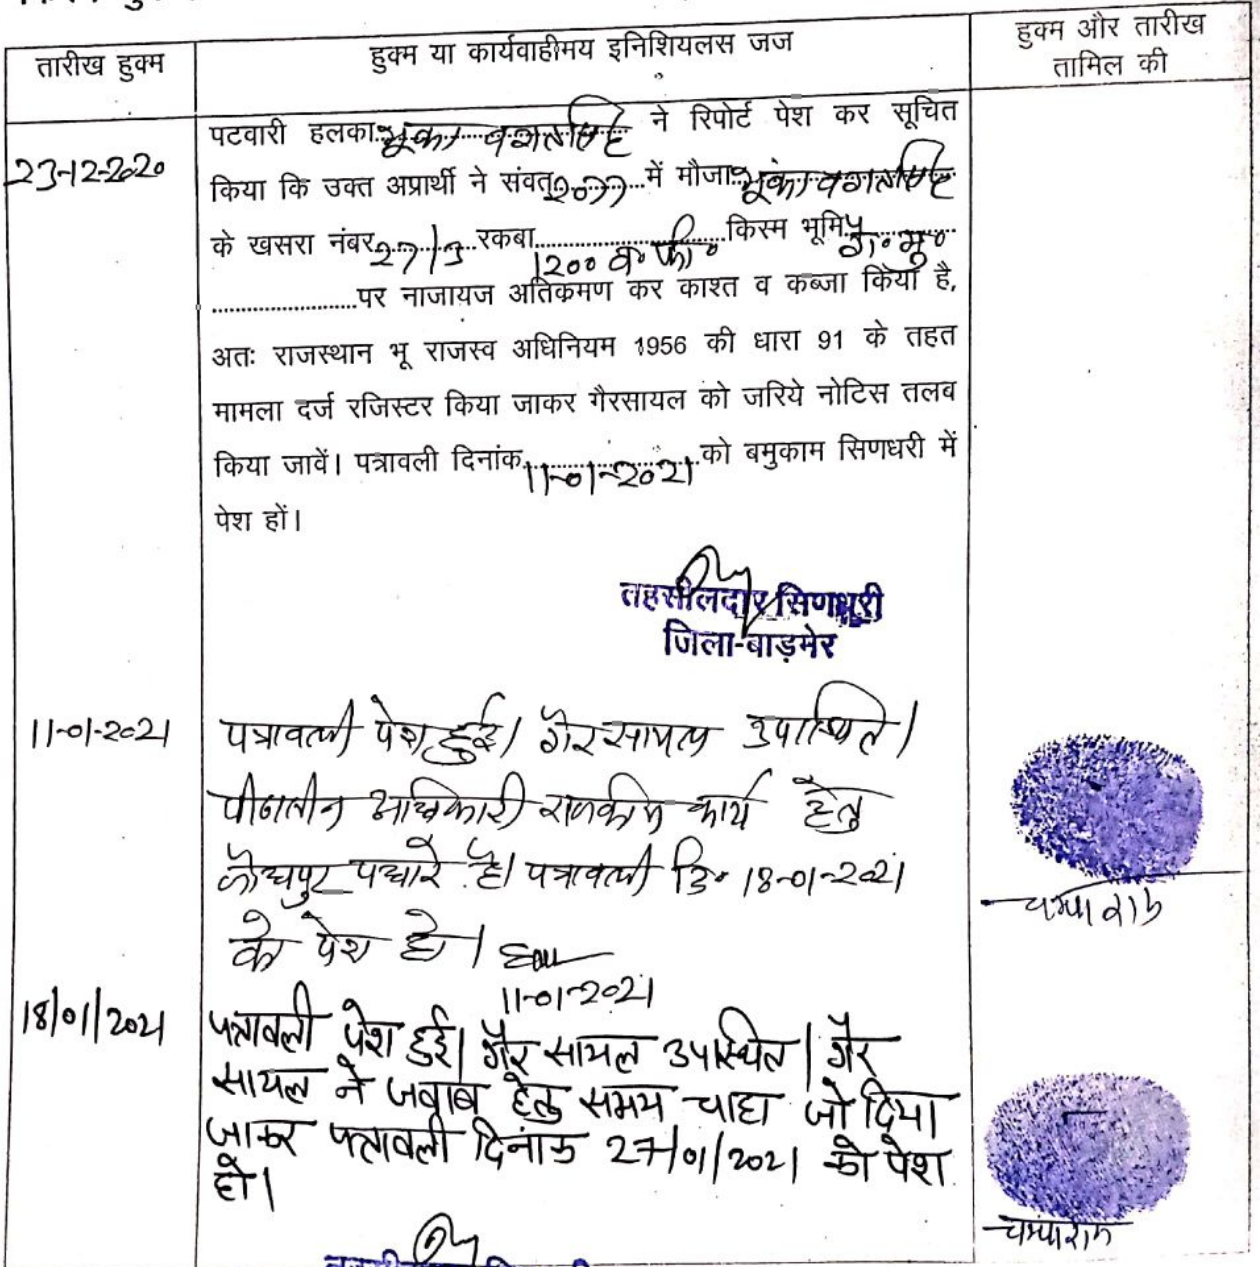 तारीख हुक्म
हुक्म या कार्यवाहीमय इनिशियलस जज
हुक्म और तारीख
तामिल की
23-12-2020
पटवारी हलका भूंका भगतसिंह ने रिपोर्ट पेश कर सूचित
किया कि उक्त अप्रार्थी ने संवत् 2077 में मौजा भूंका भगतसिंह
के खसरा नंबर 27/3 रकबा 1200 व० फी० किस्म भूमि गै० मु०
पर नाजायज अतिक्रमण कर काश्त व कब्जा किया है,
अतः राजस्थान भू राजस्व अधिनियम 1956 की धारा 91 के तहत
मामला दर्ज रजिस्टर किया जाकर गैरसायल को जरिये नोटिस तलब
किया जावें। पत्रावली दिनांक 11-01-2021 को बमुकाम सिणधरी में
पेश हों।
तहसीलदार सिणधरी
जिला-बाड़मेर
11-01-2021
पत्रावली पेश हुई। गैर सायल उपस्थित।
पीठासीन अधिकारी राजकीय कार्य हेतु
जोधपुर पधारे है। पत्रावली दि० 18-01-2021
को पेश हो।
11-01-2021
चम्पाराम
18/01/2021
पत्रावली पेश हुई। गैर सायल उपस्थित। गैर
सायल ने जवाब हेतु समय चाहा जो दिया
जाकर पत्रावली दिनांक 27/01/2021 को पेश
हो।
चम्पाराम